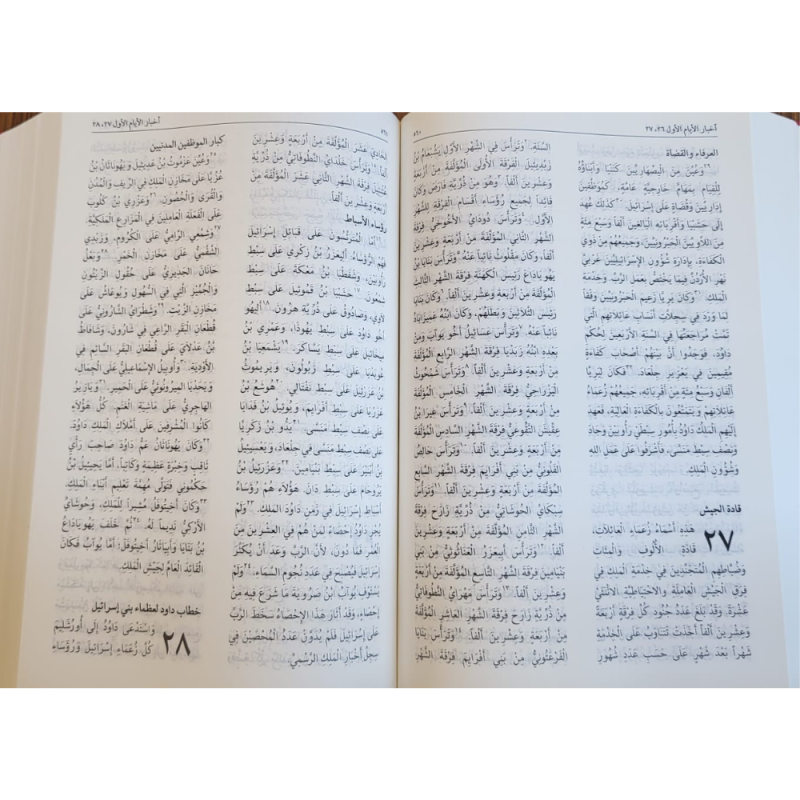 أخبار الأيام الأول ٢٦، ٢٧
٥٦٠
العرفاء والقضاة
٢٩وَعُيِّنَ مِنَ الْيِصْهَارِيِّينَ كَنَنْيَا وَأَبْنَاؤُهُ
لِلْقِيَامِ بِمَهَامَّ خَارِجِيَّةٍ عَامَّةٍ، كَمُوَظَّفِينَ
إِدَارِيِّينَ وَقُضَاةٍ عَلَى إِسْرَائِيلَ. ٣٠كَذَلِكَ عُهِدَ
إِلَى حَشَبْيَا وَأَقْرِبَائِهِ الْبَالِغِينَ أَلْفاً وَسَبْعَ مِئَةٍ
مِنَ اللَّاوِيِّينَ الْحَبْرُونِيِّينَ، وَجَمِيعُهُمْ مِنْ ذَوِي
الْكَفَاءَةِ، بِإِدَارَةِ شُؤُونِ الإِسْرَائِيلِيِّينَ غَرْبِيَّ
نَهْرِ الأُرْدُنِّ فِيمَا يَخْتَصُّ بِعَمَلِ الرَّبِّ وَخِدْمَةِ
الْمَلِكِ. ٣١وَكَانَ يَرِيَّا زَعِيمَ الْحَبْرُونِيِّينَ وَفْقاً
لِمَا وَرَدَ فِي سِجِلَّاتِ أَنْسَابِ عَائِلَاتِهِمِ الَّتِي
تَمَّتْ مُرَاجَعَتُهَا فِي السَّنَةِ الأَرْبَعِينَ لِحُكْمِ
دَاوُدَ، فَوَجَدُوا أَنَّ بَيْنَهُمْ أَصْحَابَ كَفَاءَةٍ
مُقِيمِينَ فِي يَعْزِيرَ جِلْعَادَ. ٣٢فَكَانَ لِيَرِيَّا
أَلْفَانِ وَسَبْعُ مِئَةٍ مِنْ أَقْرِبَائِهِ، جَمِيعُهُمْ زُعَمَاءُ
عَائِلَاتِهِمْ وَيَتَمَتَّعُونَ بِالْكَفَاءَةِ الْعَالِيَةِ، فَعَهِدَ
إِلَيْهِمِ الْمَلِكُ دَاوُدُ بِأُمُورِ سِبْطَيْ رَأُوبَيْنَ وَجَادٍ
وَنِصْفِ سِبْطِ مَنَسَّى، فَأَشْرَفُوا عَلَى عَمَلِ اللهِ
وَشُؤُونِ الْمَلِكِ.
قادة الجيش
٢٧ هَذِهِ أَسْمَاءُ زُعَمَاءِ الْعَائِلَاتِ،
قَادَةِ الأُلُوفِ وَالْمِئَاتِ
وَضُبَّاطِهِمِ الْمُتَجَنِّدِينَ فِي خِدْمَةِ الْمَلِكِ
فِرَقِ الْجَيْشِ الْعَامِلَةِ وَالاحْتِيَاطِيَّةِ الاثْنَتَيْ
عَشْرَةَ. وَقَدْ بَلَغَ عَدَدُ جُنُودِ كُلِّ فِرْقَةٍ أَرْبَعَةً
وَعِشْرِينَ أَلْفاً أَخَذَتْ تَتَنَاوَبُ عَلَى الْخِدْمَةِ
شَهْراً بَعْدَ شَهْرٍ عَلَى حَسَبِ عَدَدِ شُهُورِ
السَّنَةِ. ٢وَتَرَأَّسَ فِي الشَّهْرِ الأَوَّلِ يَشُبْعَامُ بْنُ
زَبْدِيئِيلَ الْفِرْقَةَ الأُولَى الْمُؤَلَّفَةَ مِنْ أَرْبَعَةٍ
وَعِشْرِينَ أَلْفاً. ٣وَهُوَ مِنْ ذُرِّيَّةِ فَارَصَ وَكَانَ
قَائِداً لِجَمِيعِ رُؤَسَاءِ أَقْسَامِ الْفِرْقَةِ
الأَوَّلِ. ٤وَتَرَأَّسَ دُودَايُ الأَخُوخِيُّ فِرْقَةَ
الشَّهْرِ الثَّانِي الْمُؤَلَّفَةَ مِنْ أَرْبَعَةٍ وَعِشْرِينَ
أَلْفاً، وَكَانَ مَقْلُوثُ نَائِباً عَنْهُ. ٥وَتَرَأَّسَ بَنَايَا بْنُ
يَهُويَادَاعَ رَئِيسُ الْكَهَنَةِ فِرْقَةَ الشَّهْرِ الثَّالِثِ
الْمُؤَلَّفَةَ مِنْ أَرْبَعَةٍ وَعِشْرِينَ أَلْفاً. ٦وَكَانَ بَنَايَا
رَئِيسَ الثَّلاثِينَ وَبَطَلَهُمْ، وَكَانَ ابْنُهُ عَمِيزَابَادُ
نَائِباً عَنْهُ. ٧وَتَرَأَّسَ عَسَائِيلُ أَخُو يُوآبَ وَمِنْ
بَعْدِهِ ابْنُهُ زَبَدْيَا فِرْقَةَ الشَّهْرِ الرَّابِعِ الْمُؤَلَّفَةَ
مِنْ أَرْبَعَةٍ وَعِشْرِينَ أَلْفاً. ٨وَتَرَأَّسَ شَمْحُوثُ
الْيَزْرَاحِيُّ فِرْقَةَ الشَّهْرِ الْخَامِسِ الْمُؤَلَّفَةَ
مِنْ أَرْبَعَةٍ وَعِشْرِينَ أَلْفاً. ٩وَتَرَأَّسَ عِيرَا بْنُ
عِقِّيشَ التَّقُوعِيُّ فِرْقَةَ الشَّهْرِ السَّادِسِ الْمُؤَلَّفَةَ
مِنْ أَرْبَعَةٍ وَعِشْرِينَ أَلْفاً. ١٠وَتَرَأَّسَ حَالَصُ
الْفَلُونِيُّ مِنْ بَنِي أَفْرَايِمَ فِرْقَةَ الشَّهْرِ السَّابِعِ
الْمُؤَلَّفَةَ مِنْ أَرْبَعَةٍ وَعِشْرِينَ أَلْفاً. ١١وَتَرَأَّسَ
سِبْكَايُ الْحُوشَاتِيُّ مِنْ ذُرِّيَّةِ زَارَحَ فِرْقَةَ
الشَّهْرِ الثَّامِنِ الْمُؤَلَّفَةَ مِنْ أَرْبَعَةٍ وَعِشْرِينَ
أَلْفاً. ١٢وَتَرَأَّسَ أَبِيعَزَرُ الْعَنَاثُوثِيُّ مِنْ بَنِي
بَنْيَامِينَ فِرْقَةَ الشَّهْرِ التَّاسِعِ الْمُؤَلَّفَةَ مِنْ أَرْبَعَةٍ
وَعِشْرِينَ أَلْفاً. ١٣وَتَرَأَّسَ مَهْرَايُ النَّطُوفَاتِيُّ
مِنْ ذُرِّيَّةِ زَارَحَ فِرْقَةَ الشَّهْرِ الْعَاشِرِ الْمُؤَلَّفَةَ
مِنْ أَرْبَعَةٍ وَعِشْرِينَ أَلْفاً. ١٤وَتَرَأَّسَ بَنَايَا
الْفَرْعَتُونِيُّ مِنْ بَنِي أَفْرَايِمَ فِرْقَةَ الشَّهْرِ
٥٦١
أخبار الأيام الأول ٢٧، ٢٨
الْحَادِي عَشَرَ الْمُؤَلَّفَةَ مِنْ أَرْبَعَةٍ وَعِشْرِينَ
أَلْفاً. ١٥وَتَرَأَّسَ خَلْدَايُ النَّطُوفَاتِيُّ مِنْ ذُرِّيَّةِ
عُثْنِيئِيلَ فِرْقَةَ الشَّهْرِ الثَّانِي عَشَرَ الْمُؤَلَّفَةَ مِنْ
أَرْبَعَةٍ وَعِشْرِينَ أَلْفاً.
رؤساء الأسباط
١٦أَمَّا الْمُتَرَئِّسُونَ عَلَى قَبَائِلِ إِسْرَائِيلَ
فَهُمْ الرُّؤَسَاءُ: أَلِيعَزَرُ بْنُ زِكْرِي عَلَى سِبْطِ
رَأُوبَيْنَ، وَشَفَطْيَا بْنُ مَعْكَةَ عَلَى سِبْطِ
شِمْعُونَ. ١٧حَشَبْيَا بْنُ قَمُوئِيلَ عَلَى سِبْطِ
لاوِي، وَصَادُوقُ عَلَى ذُرِّيَّةِ هرُونَ. ١٨أَلِيهُو
أَخُو دَاوُدَ عَلَى سِبْطِ يَهُوذَا، وَعَمْرِي بْنُ
مِيخَائِيلَ عَلَى سِبْطِ يَسَّاكَرَ. ١٩يِشْمَعِيَا بْنُ
عُوبَدْيَا عَلَى سِبْطِ زَبُولُونَ، وَيَرِيمُوثُ
بْنُ عَزَرْئِيلَ عَلَى سِبْطِ نَفْتَالِي. ٢٠هُوشَعُ بْنُ
عَزَزْيَا عَلَى سِبْطِ أَفْرَايِمَ، وَيُوئِيلُ بْنُ فَدَايَا
عَلَى نِصْفِ سِبْطِ مَنَسَّى. ٢١يَدُّو بْنُ زَكَرِيَّا
عَلَى نِصْفِ سِبْطِ مَنَسَّى فِي جِلْعَادَ، وَيَعْسِيئِيلُ
بْنُ أَبْنَيْرَ عَلَى سِبْطِ بَنْيَامِينَ. ٢٢وَعَزَرْئِيلُ بْنُ
يَرُوحَامَ عَلَى سِبْطِ دَانَ. هَؤُلاءِ هُمْ رُؤَسَاءُ
أَسْبَاطِ إِسْرَائِيلَ فِي زَمَنِ دَاوُدَ. ٢٣وَلَمْ
يُجْرِ دَاوُدُ إِحْصَاءً لِمَنْ هُمْ فِي الْعِشْرِينَ مِنَ
الْعُمْرِ فَمَا دُونُ، لأَنَّ الرَّبَّ وَعَدَ أَنْ يُكَثِّرَ
إِسْرَائِيلَ فَيُصْبِحَ فِي عَدَدِ نُجُومِ السَّمَاءِ. ٢٤وَلَمْ
يَسْتَوْفِ يُوآبُ ابْنُ صُرُويَةَ مَا شَرَعَ فِيهِ مِنْ
إِحْصَاءٍ، وَقَدْ أَثَارَ هَذَا الإِحْصَاءُ سَخَطَ الرَّبِّ
عَلَى إِسْرَائِيلَ، فَلَمْ يُدَوَّنْ عَدَدُ الْمُحْصَيْنَ فِي
سِجِلِّ أَخْبَارِ الْمَلِكِ الرَّسْمِيِّ.
كبار الموظفين المدنيين
٢٥وَعُيِّنَ عَزْمُوتُ بْنُ عَدِيئِيلَ وَيَهُونَاثَانُ بْنُ
عُزِّيَّا عَلَى مَخَازِنِ الْمَلِكِ فِي الرِّيفِ وَالْمُدُنِ
وَالْقُرَى وَالْحُصُونِ. ٢٦وَعَزْرِي بْنُ كَلُوبَ
عَلَى الْفَعَلَةِ الْعَامِلِينَ فِي الْمَزَارِعِ الْمَلَكِيَّةِ.
٢٧وَشِمْعِي الرَّامِيُّ عَلَى الْكُرُومِ، وَزَبْدِي
الشَّفْمِيُّ عَلَى مَخَازِنِ الْخَمْرِ. ٢٨وَبَعْلُ
حَانَانَ الْجَدِيرِيُّ عَلَى حُقُولِ الزَّيْتُونِ
وَالْجُمَّيْزِ الَّتِي فِي السُّهُولِ وَيُوعَاشُ عَلَى
مَخَازِنِ الزَّيْتِ. ٢٩وَشَطْرَايُ الشَّارُونِيُّ عَلَى
قُطْعَانِ الْبَقَرِ الرَّاعِي فِي شَارُونَ، وَشَافَاطُ
بْنُ عَدْلايَ عَلَى قُطْعَانِ الْبَقَرِ السَّائِمِ فِي
الأَوْدِيَةِ. ٣٠وَأُوبِيلُ الإِسْمَاعِيلِيُّ عَلَى الْجِمَالِ،
وَيَحَدْيَا الْمِيرُونُوثِيُّ عَلَى الْحَمِيرِ. ٣١وَيَازِيزُ
الْهَاجَرِيُّ عَلَى مَاشِيَةِ الْغَنَمِ. كُلُّ هَؤُلاءِ
كَانُوا الْمُشْرِفِينَ عَلَى أَمْلاكِ الْمَلِكِ دَاوُدَ.
٣٢وَكَانَ يَهُونَاثَانُ عَمُّ دَاوُدَ صَاحِبَ رَأْيٍ
ثَاقِبٍ وَخِبْرَةٍ عَظِيمَةٍ وَكَاتِباً. أَمَّا يَحِيئِيلُ بْنُ
حَكْمُونِي فَتَوَلَّى مُهِمَّةَ تَعْلِيمِ أَبْنَاءِ الْمَلِكِ.
٣٣وَكَانَ أَخِيتُوفَلُ مُشِيراً لِلْمَلِكِ، وَحُوشَايُ
الأَرْكِيُّ نَدِيماً لَهُ. ٣٤ثُمَّ خَلَفَ يَهُويَادَاعُ
بْنُ بَنَايَا وَأَبِيَاثَارُ أَخِيتُوفَلَ؛ أَمَّا يُوآبُ فَكَانَ
الْقَائِدَ الْعَامَّ لِجَيْشِ الْمَلِكِ.
خطاب داود لعظماء بني إسرائيل
٢٨ وَاسْتَدْعَى دَاوُدُ إِلَى أُورُشَلِيمَ
كُلَّ زُعَمَاءِ إِسْرَائِيلَ وَرُؤَسَاءِ